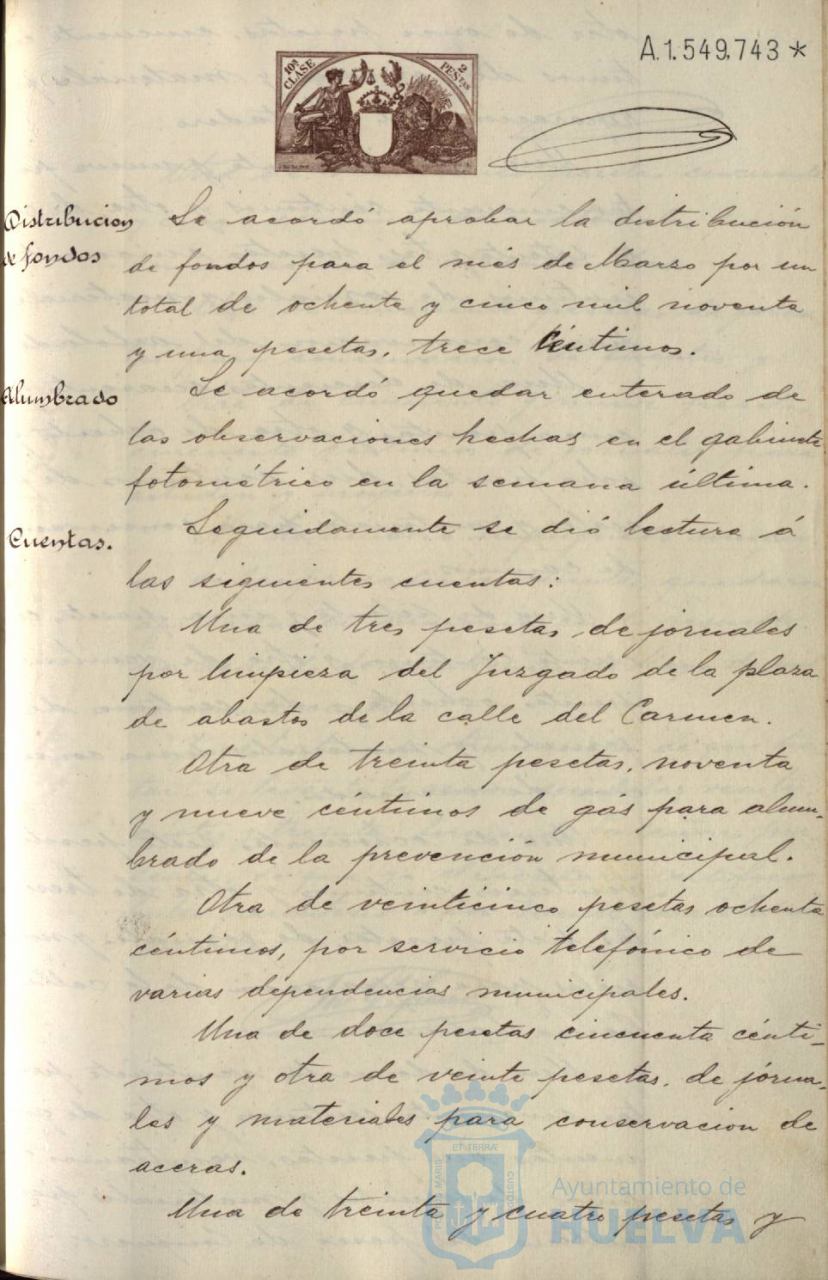 A.1.549.743*
10ª CLASE
2 PESETAS
Distribucion
de fondos
Se acordó aprobar la distribución
de fondos para el més de Marzo por un
total de ochenta y cinco mil noventa
y una pesetas, trece céntimos.
Alumbrado
Se acordó quedar enterado de
las observaciones hechas en el gabinete
fotométrico en la semana última.
Cuentas.
Seguidamente se dió lectura á
las siguientes cuentas:
Una de tres pesetas, de jornales
por limpieza del Juzgado de la plaza
de abastos de la calle del Carmen.
Otra de treinta pesetas, noventa
y nueve céntimos de gás para alum-
brado de la prevención municipal.
Otra de veinticinco pesetas ochenta
céntimos, por servicio telefónico de
varias dependencias municipales.
Una de doce pesetas cincuenta cénti-
mos y otra de veinte pesetas, de jorna-
les y materiales para conservacion de
aceras.
Una de treinta y cuatro pesetas y
Ayuntamiento de
HUELVA